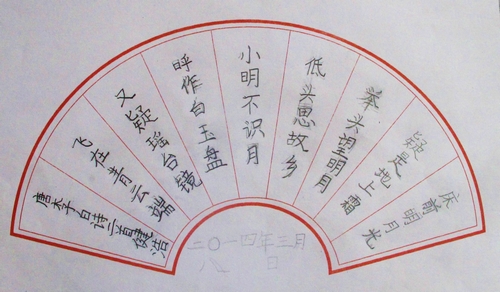 床前明月光
疑是地上霜
举头望明月
低头思故乡
小明不识月
呼作白玉盘
又疑瑶台镜
飞在青云端
唐李白诗二首健浩
二〇一四年三月
八日